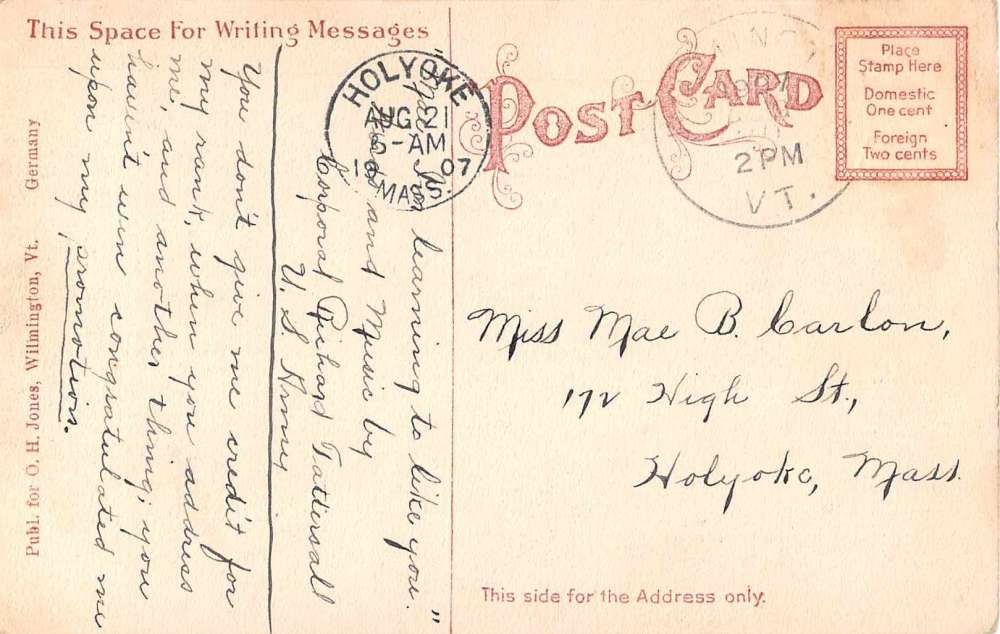 This Space For Writing Messages
POST CARD
Place
Stamp Here
Domestic
One cent
Foreign
Two cents
HOLYOKE
AUG 21
5-AM
1907
MASS.
2 PM
VT.
learning to like you."
Words and Music by
Corporal Richard Tattersall
U. S. Army
You don't give me credit for
my rank, when you address
me, and another thing, you
haven't even congratulated me
upon my, promotion.
Miss Mae B. Carlon,
172 High St.,
Holyoke, Mass.
This side for the Address only.
Publ. for O. H. Jones, Wilmington, Vt. Germany